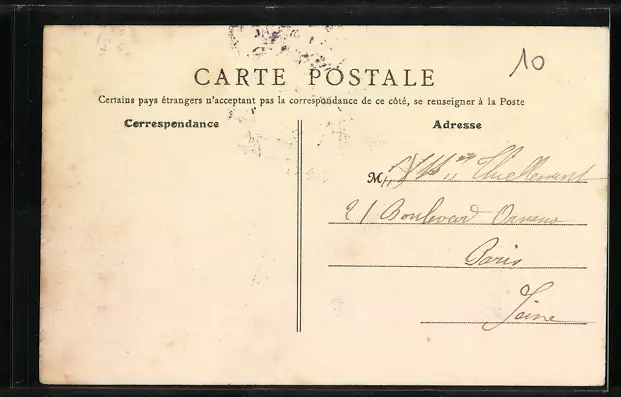 10
CARTE POSTALE
Certains pays étrangers n'acceptant pas la correspondance de ce côté, se renseigner à la Poste
Correspondance
Adresse
M
21 Boulevard Ornano
Paris
Seine